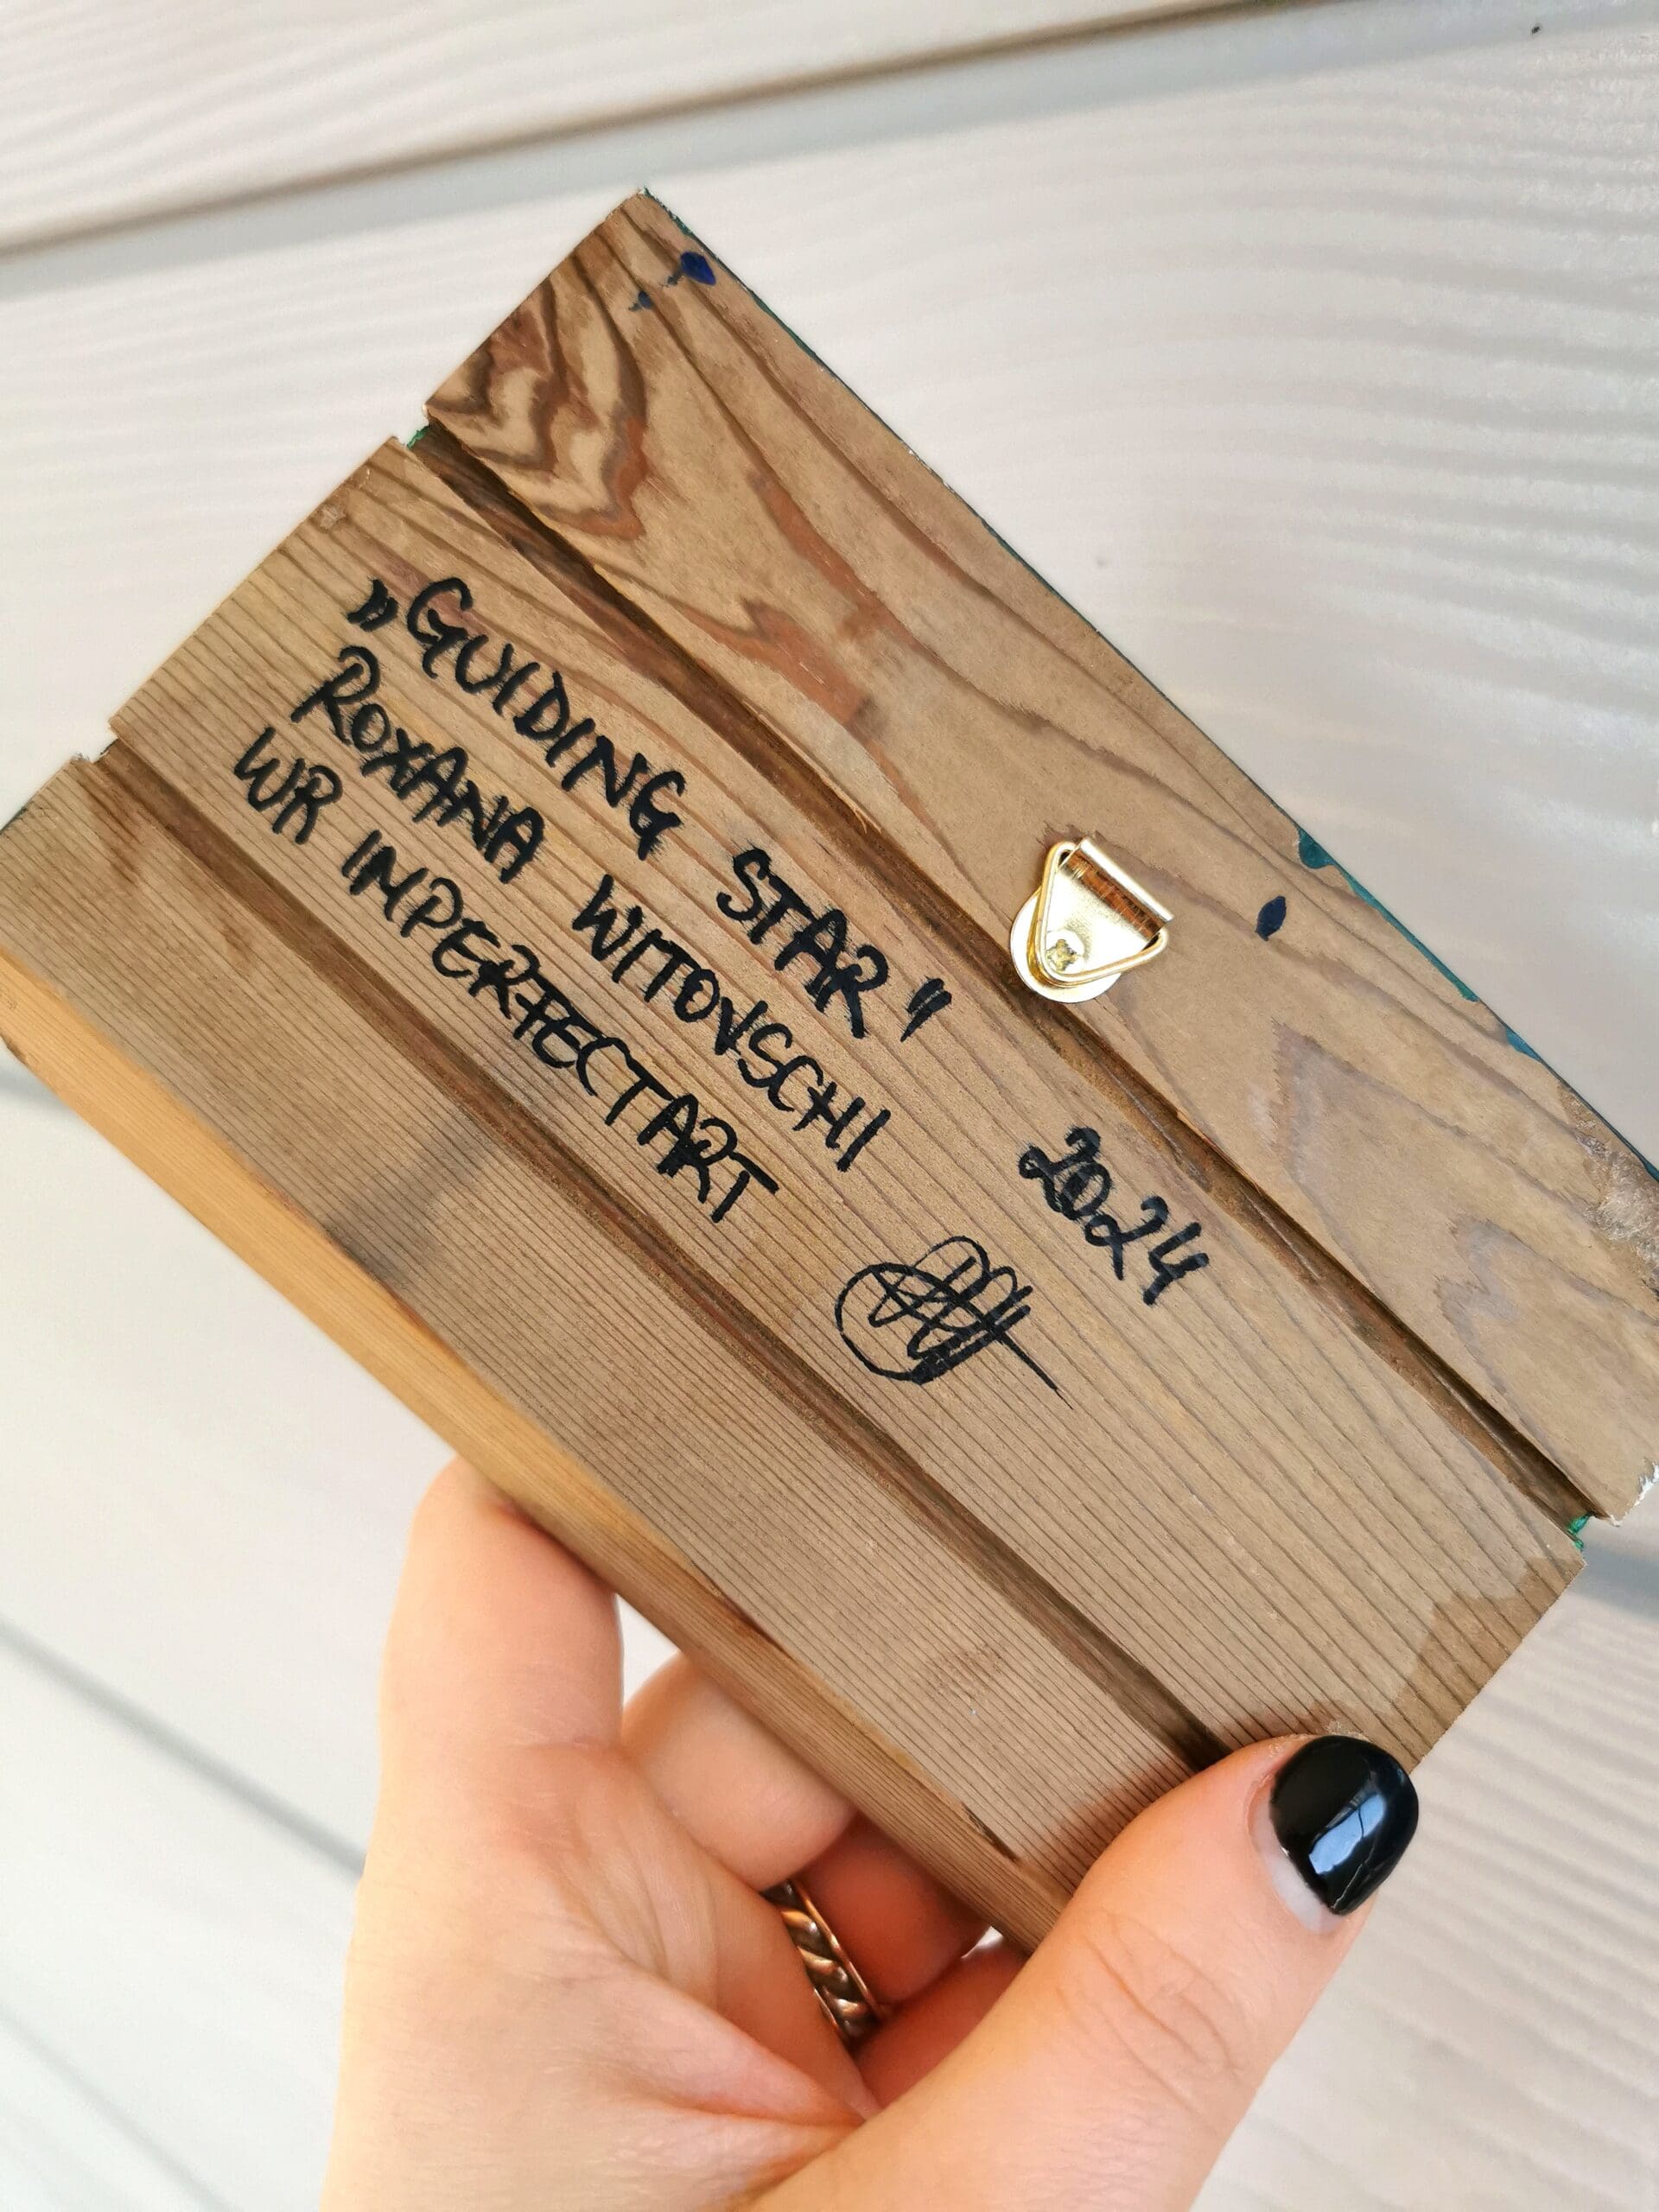 „GUIDING STAR"
ROXANA WITOVSCHI
WR IMPERFECTART
2024